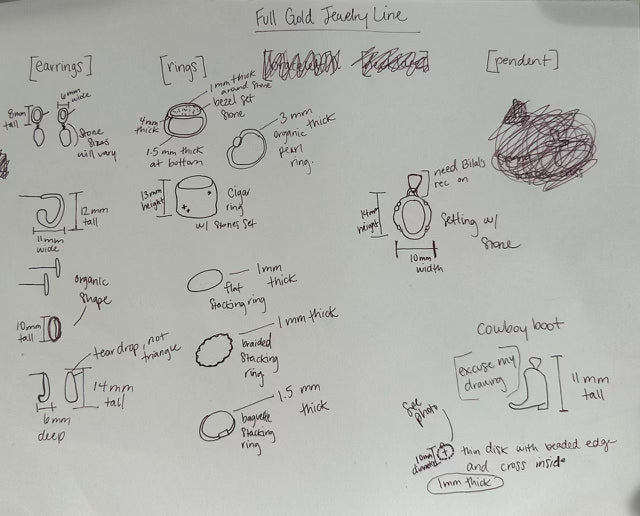 Full Gold Jewelry Line
[earrings]
8mm
tall
6mm
wide
Stone
sizes
will vary
12mm
tall
11mm
wide
organic
shape
10mm
tall
teardrop, not
triangle
14mm
tall
6mm
deep
[rings]
1mm thick
around stone
bezel set
stone
4mm
thick
1.5mm thick
at bottom
3mm
thick
organic
pearl
ring.
13mm
height
Cigar
ring
w/ stones set
1mm
thick
flat
stacking ring
1mm thick
braided
stacking
ring.
1.5 mm
thick
baguette
stacking
ring
[pendent]
need Bilal's
rec on
14mm
height
setting w/
stone
10mm
width
Cowboy boot
[excuse my
drawing]
11mm
tall
See
photo
10mm
thin disk with beaded edge
and cross inside
1mm thick